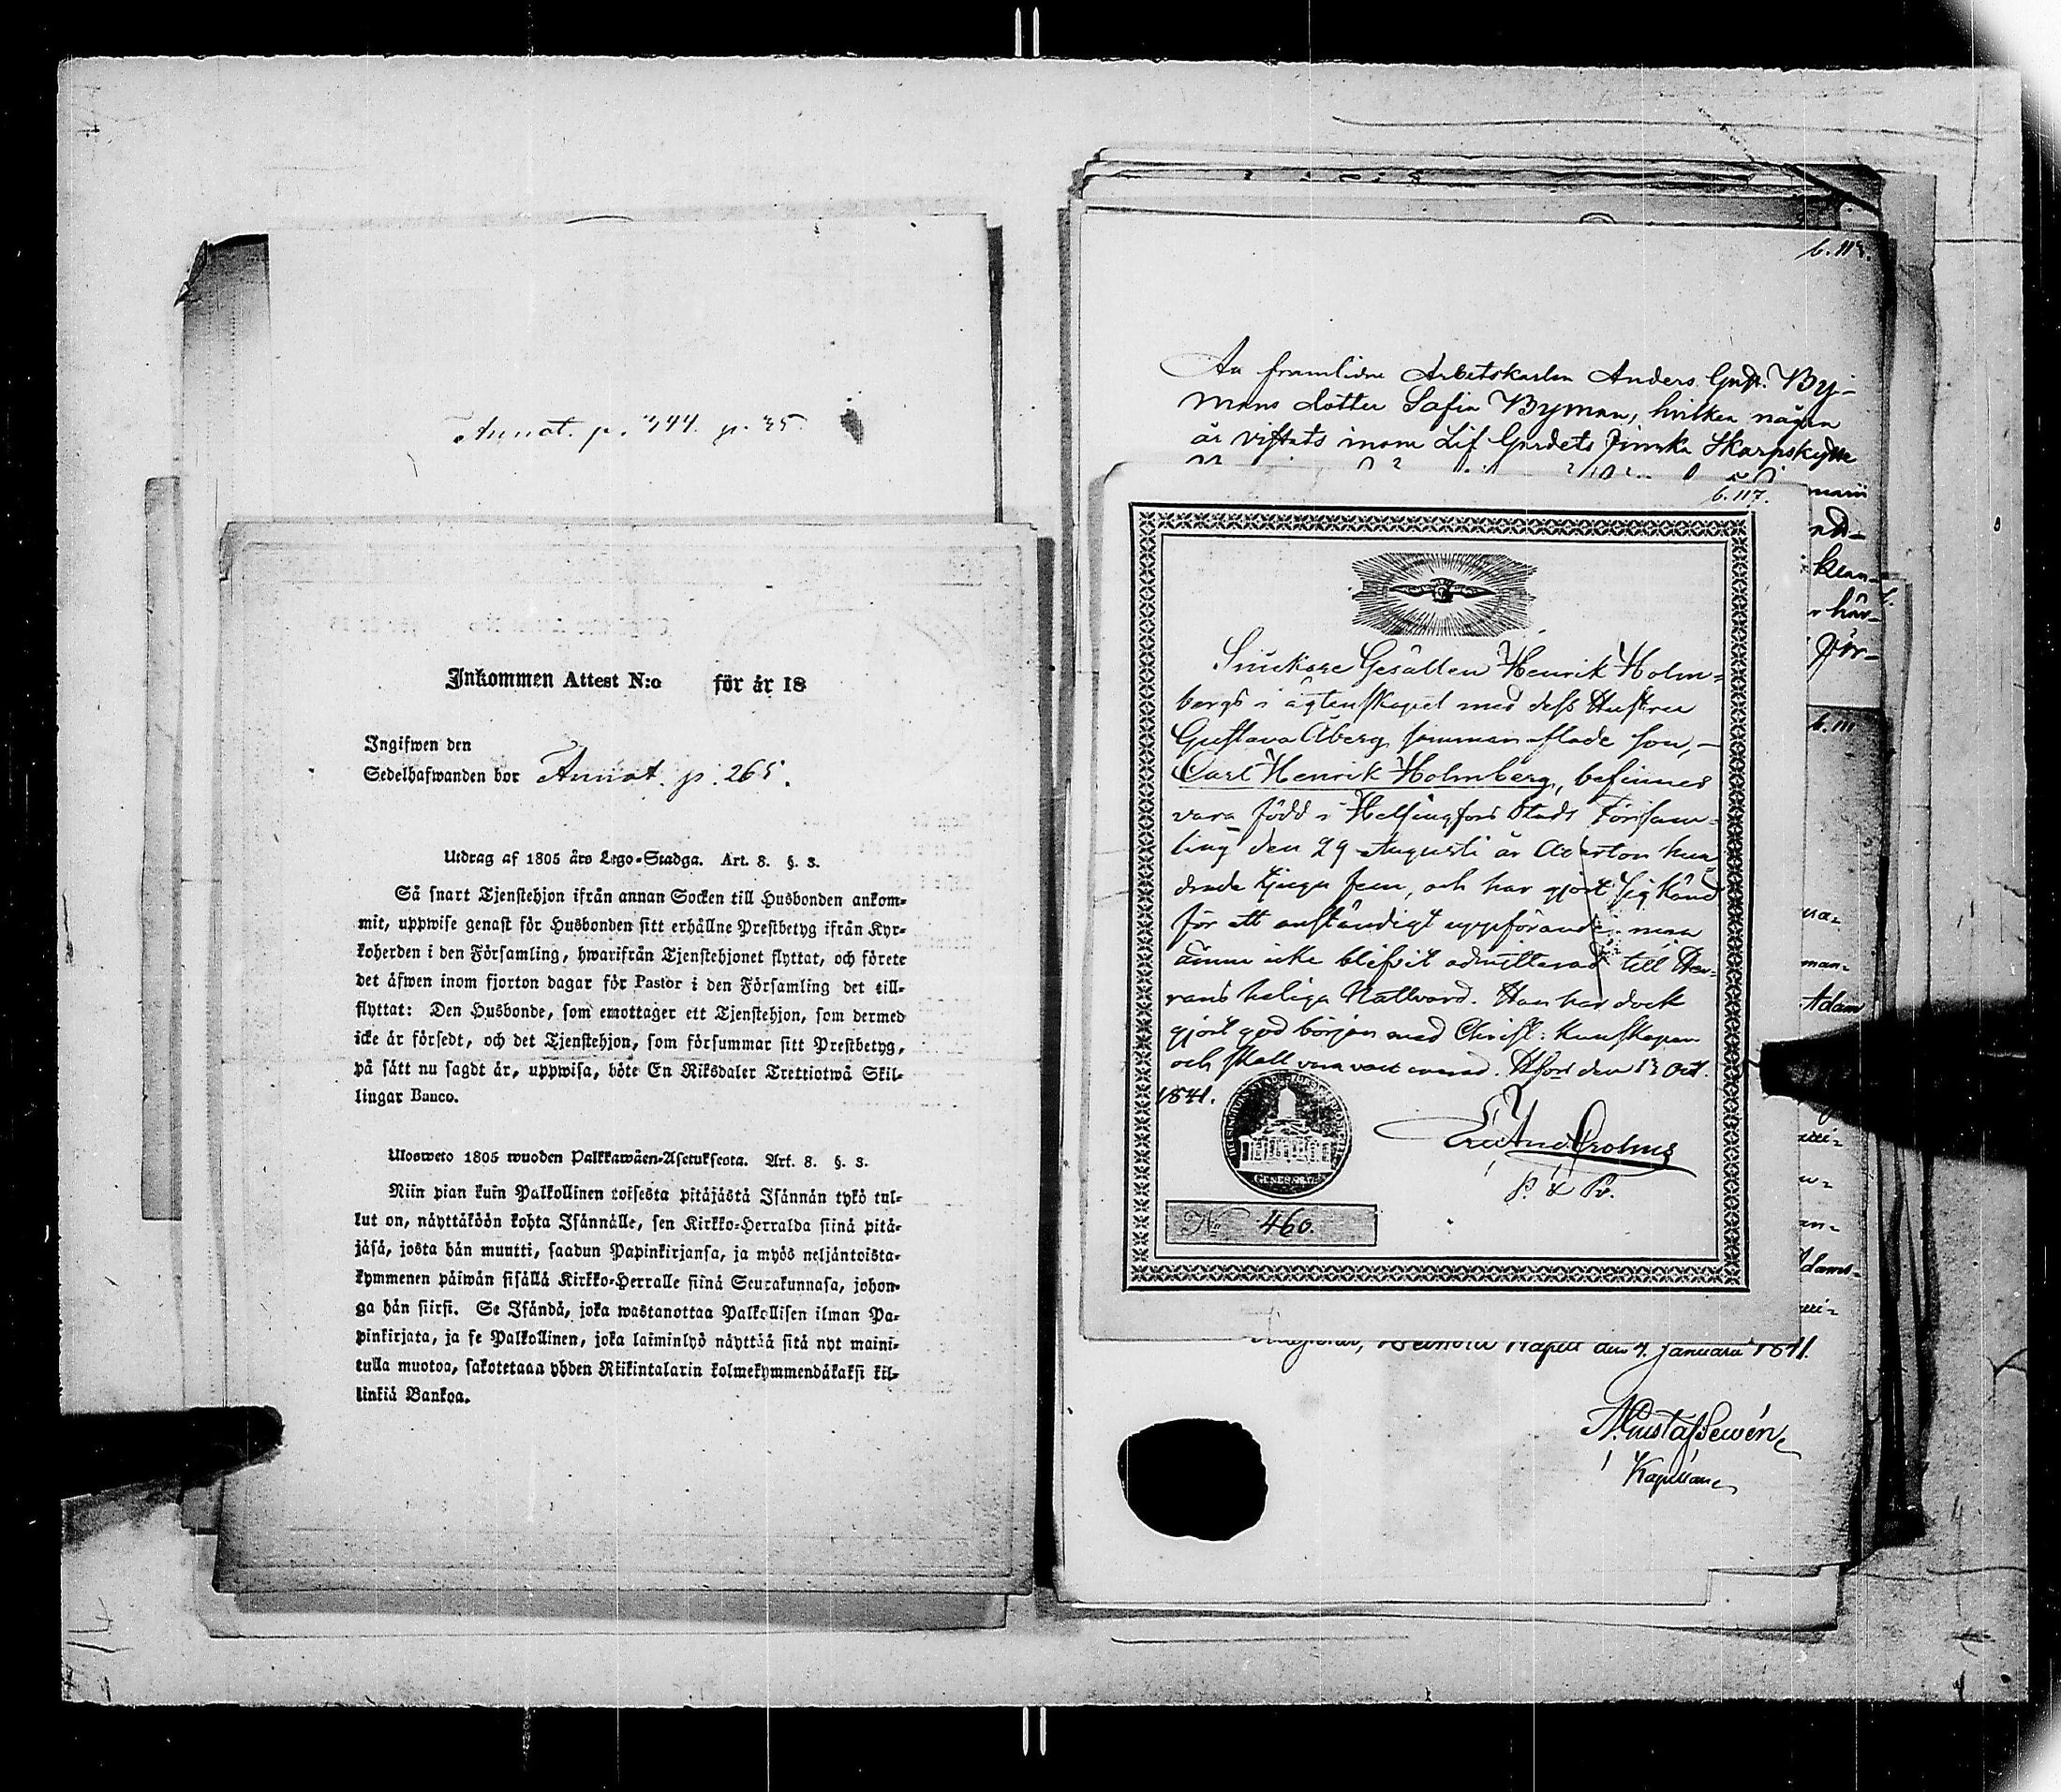 Annat. p. 344. p. 35
Inkommen Attest N:o för år 18
Ingifwen den
Sedelhafwanden bor Annat. p. 265.
Utdrag af 1805 års Lego-Stadga. Art. 8. §. 3.
Så snart Tjenstehjon ifrån annan Socken till Husbonden ankom-
mit, uppwise genast för Husbonden sitt erhållne Prestbetyg ifrån Kyr-
koherden i den Församling, hwarifrån Tjenstehjonet flyttat, och förete
det äfwen inom fjorton dagar för Pastor i den Församling det till-
flyttat: Den Husbonde, som emottager ett Tjenstehjon, som dermed
icke är försedt, och det Tjenstehjon, som försummar sitt Prestbetyg,
på sätt nu sagdt är, uppwisa, böte En Riksdaler Trettiotwå Skil-
lingar Banco.
Ulosweto 1805 wuoden Palkkawäen-Asetuksesta. Art. 8. §. 3.
Niin pian kuin Palkollinen toisesta pitäjästä Isännän tykö tul-
lut on, näyttäköön kohta Isännälle, sen Kirkko-Herralda siinä pitä-
jäsä, josta hän muutti, saadun Papinkirjansa, ja myös neljäntoista-
kymmenen päiwän sisällä Kirkko-Herralle siinä Seurakunnasa, johon-
ga hän siirsi. Se Isändä, joka wastanottaa Palkollisen ilman Pa-
pinkirjata, ja se Palkollinen, joka laiminlyö näyttää sitä nyt maini-
tulla muotoa, sakotetaan yhden Riikintalarin kolmekymmendäkaksi kil-
linkiä Bankoa.
b. 119.
Aa framlidne Arbetskarlen Anders Gust. By-
mans dotter Sofia Byman, hvilken några
år vistats inom Lif Gardets Finska Skarpskytte
b. 117.
Snickare Gesällen Henrik Holm-
bergs i ägtenskapet med dess Hustru
Gustava Åberg sammanaflade son,
Carl Henrik Holmberg, befinnes
vara född i Helsingfors Stads Försam-
ling den 29 Augusti år Aderton hun
drade tjugu fem, och har gjort sig känd
för ett anständigt uppförande, men
ännu icke blifvit admitterad till Her-
rans heliga Nattvard. Han har dock
gjort god början med Christ: kunskapen
och skall vara vaccinerad. Hfors den 13 Oct.
1841.
N:o 460.
b. 111
Adam
Kapell den 4. Januarii 1841.
N. Gustaf Lewén
Kapellan